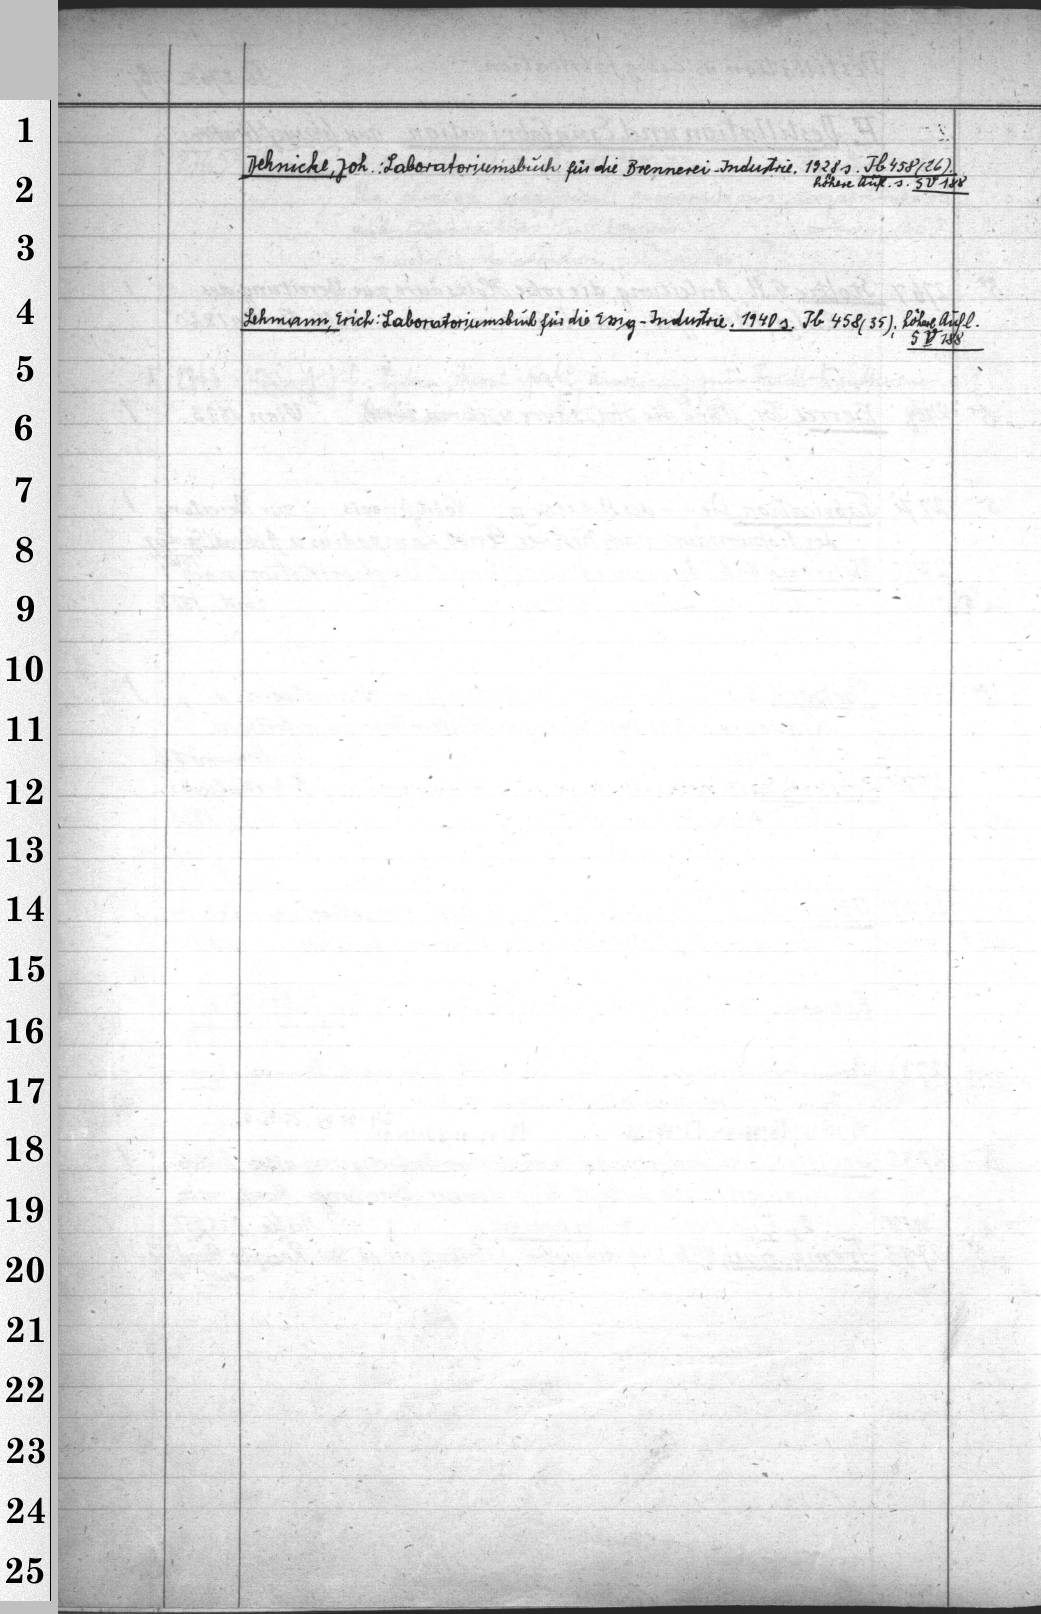 1
2
3
4
5
6
7
8
9
10
11
12
13
14
15
16
17
18
19
20
21
22
23
24
25
Dehnicke, Joh.: Laboratoriumsbuch für die Brennerei-Industrie. 1928 s. Jb 458 (26).
höhere Aufl. s. S V 188
Lehmann, Erich: Laboratoriumsbuch für die Essig-Industrie. 1940 s. Jb 458 (35); höhere Aufl.
S V 188